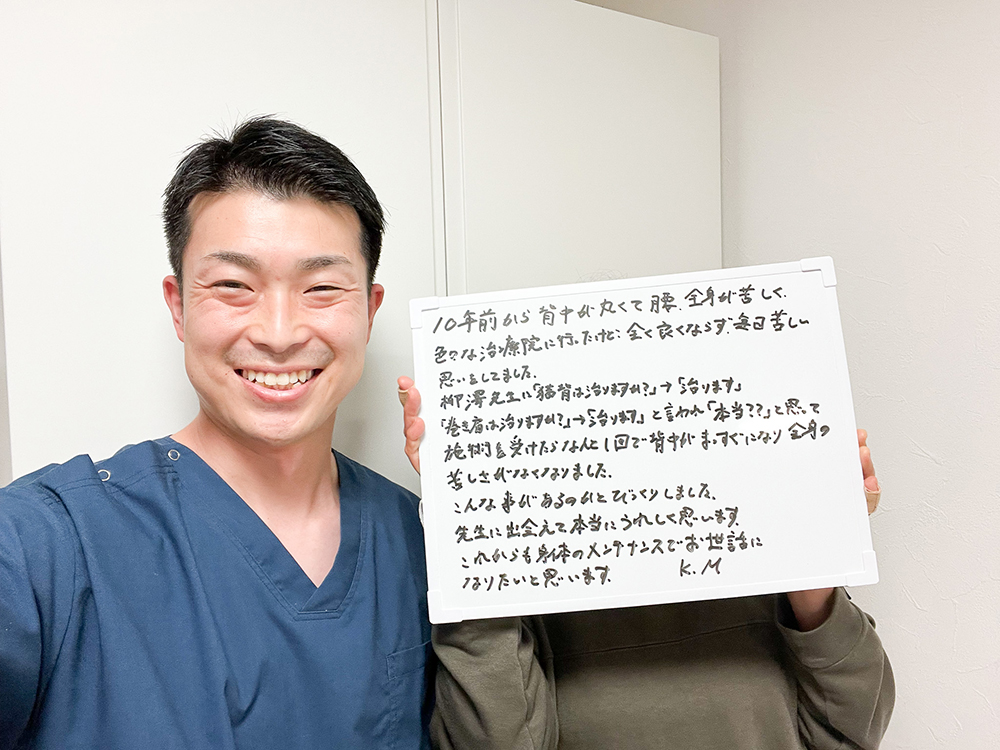 10年前から背中が丸くて腰、全身が苦しく、
色々な治療院に行ったけど、全く良くならず、毎日苦しい
思いをしてました。
柳澤先生に「猫背は治りますか?」→「治ります」
「巻き肩は治りますか?」→「治ります」と言われ「本当??」と思って
施術を受けたらなんと1回で背中がまっすぐになり全身の
苦しさがなくなりました。
こんな事があるのかとびっくりしました。
先生に出会えて本当にうれしく思います。
これからも身体のメンテナンスでお世話に
なりたいと思います。 K.M